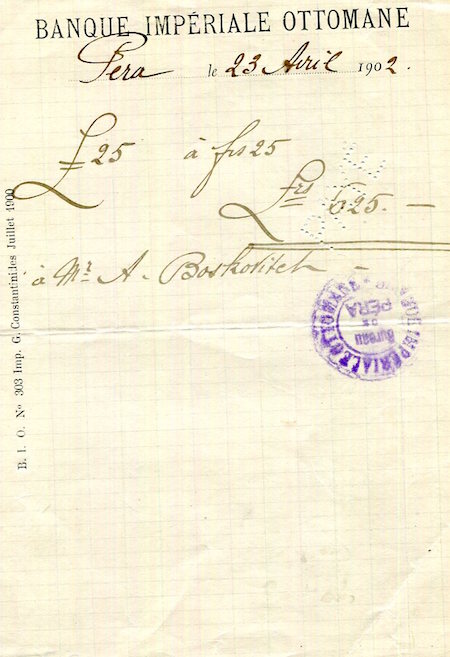 BANQUE IMPÉRIALE OTTOMANE
Pera le 23 Avril 1902.
£ 25 à frs 25
Frs 625.—
à Mr. A. Boskovitch —
BANQUE IMPÉRIALE OTTOMANE
Bureau
DE
PÉRA
B. I. O. No 303 Imp. G. Constantinides Juillet 1900